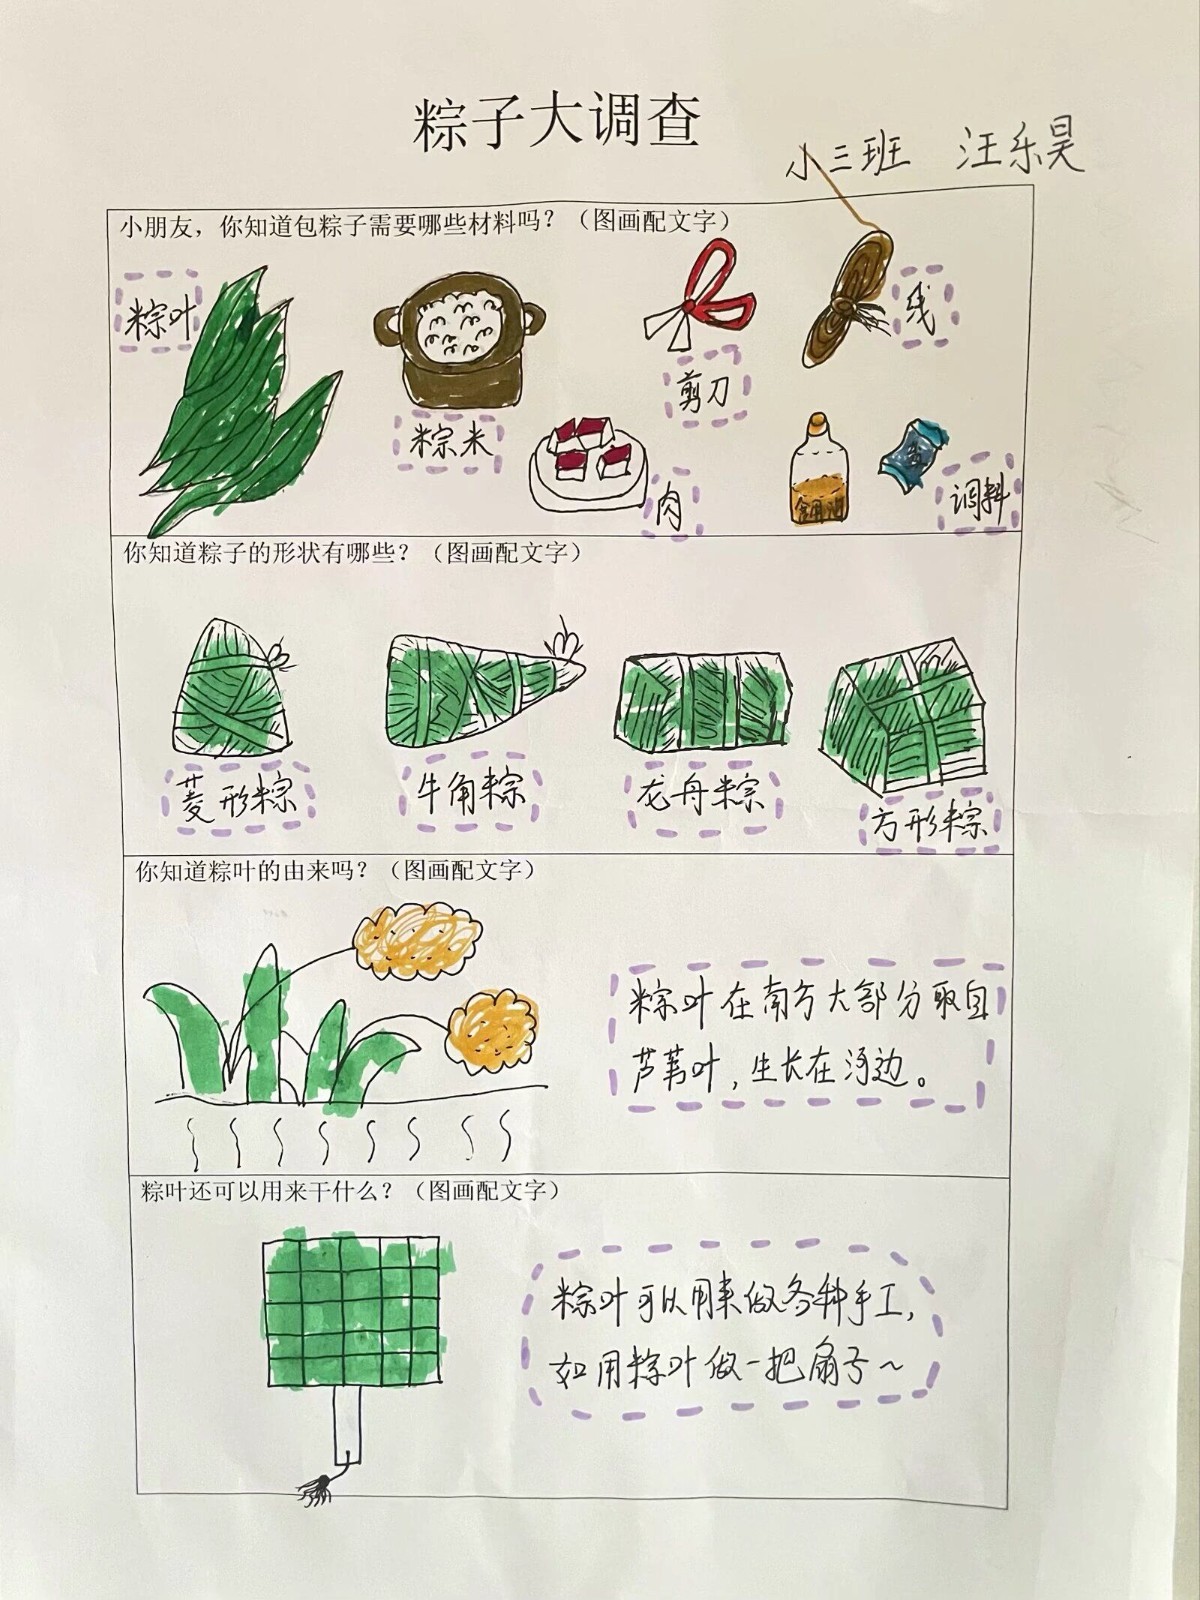 粽子大调查
小三班 汪乐昊
小朋友，你知道包粽子需要哪些材料吗？（图画配文字）
粽叶
粽米
剪刀
线
肉
酱油
盐
调料
你知道粽子的形状有哪些？（图画配文字）
菱形粽
牛角粽
龙舟粽
方形粽
你知道粽叶的由来吗？（图画配文字）
粽叶在南方大部分取自
芦苇叶，生长在河边。
粽叶还可以用来干什么？（图画配文字）
粽叶可以用来做各种手工，
如用粽叶做一把扇子～